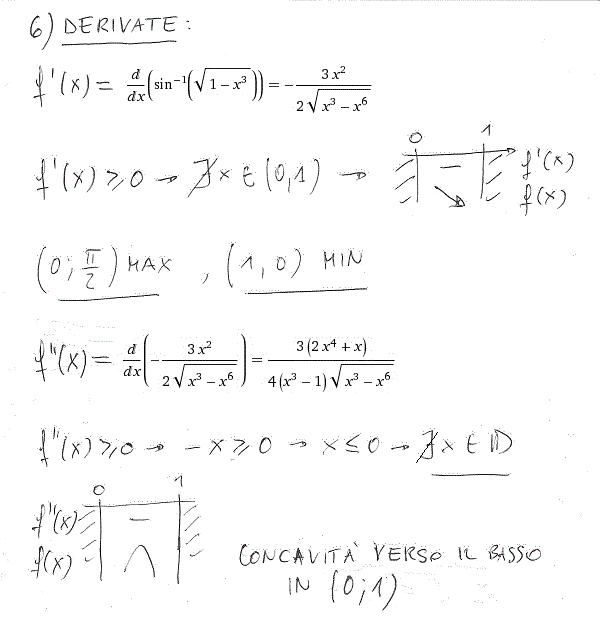 6) DERIVATE:
f'(x) = d/dx(sin⁻¹(√(1-x³))) = -3x²/(2√(x³-x⁶))
f'(x) ≥ 0 → ∄x ∈ (0,1) →
0 1
- f'(x)
↘ f(x)
(0; π/2) MAX , (1,0) MIN
f''(x) = d/dx(-3x²/(2√(x³-x⁶))) = 3(2x⁴+x)/(4(x³-1)√(x³-x⁶))
f''(x) ≥ 0 → -x ≥ 0 → x ≤ 0 → ∄x ∈ D
0 1
f''(x) -
f(x) ∩
CONCAVITÀ VERSO IL BASSO
IN (0;1)